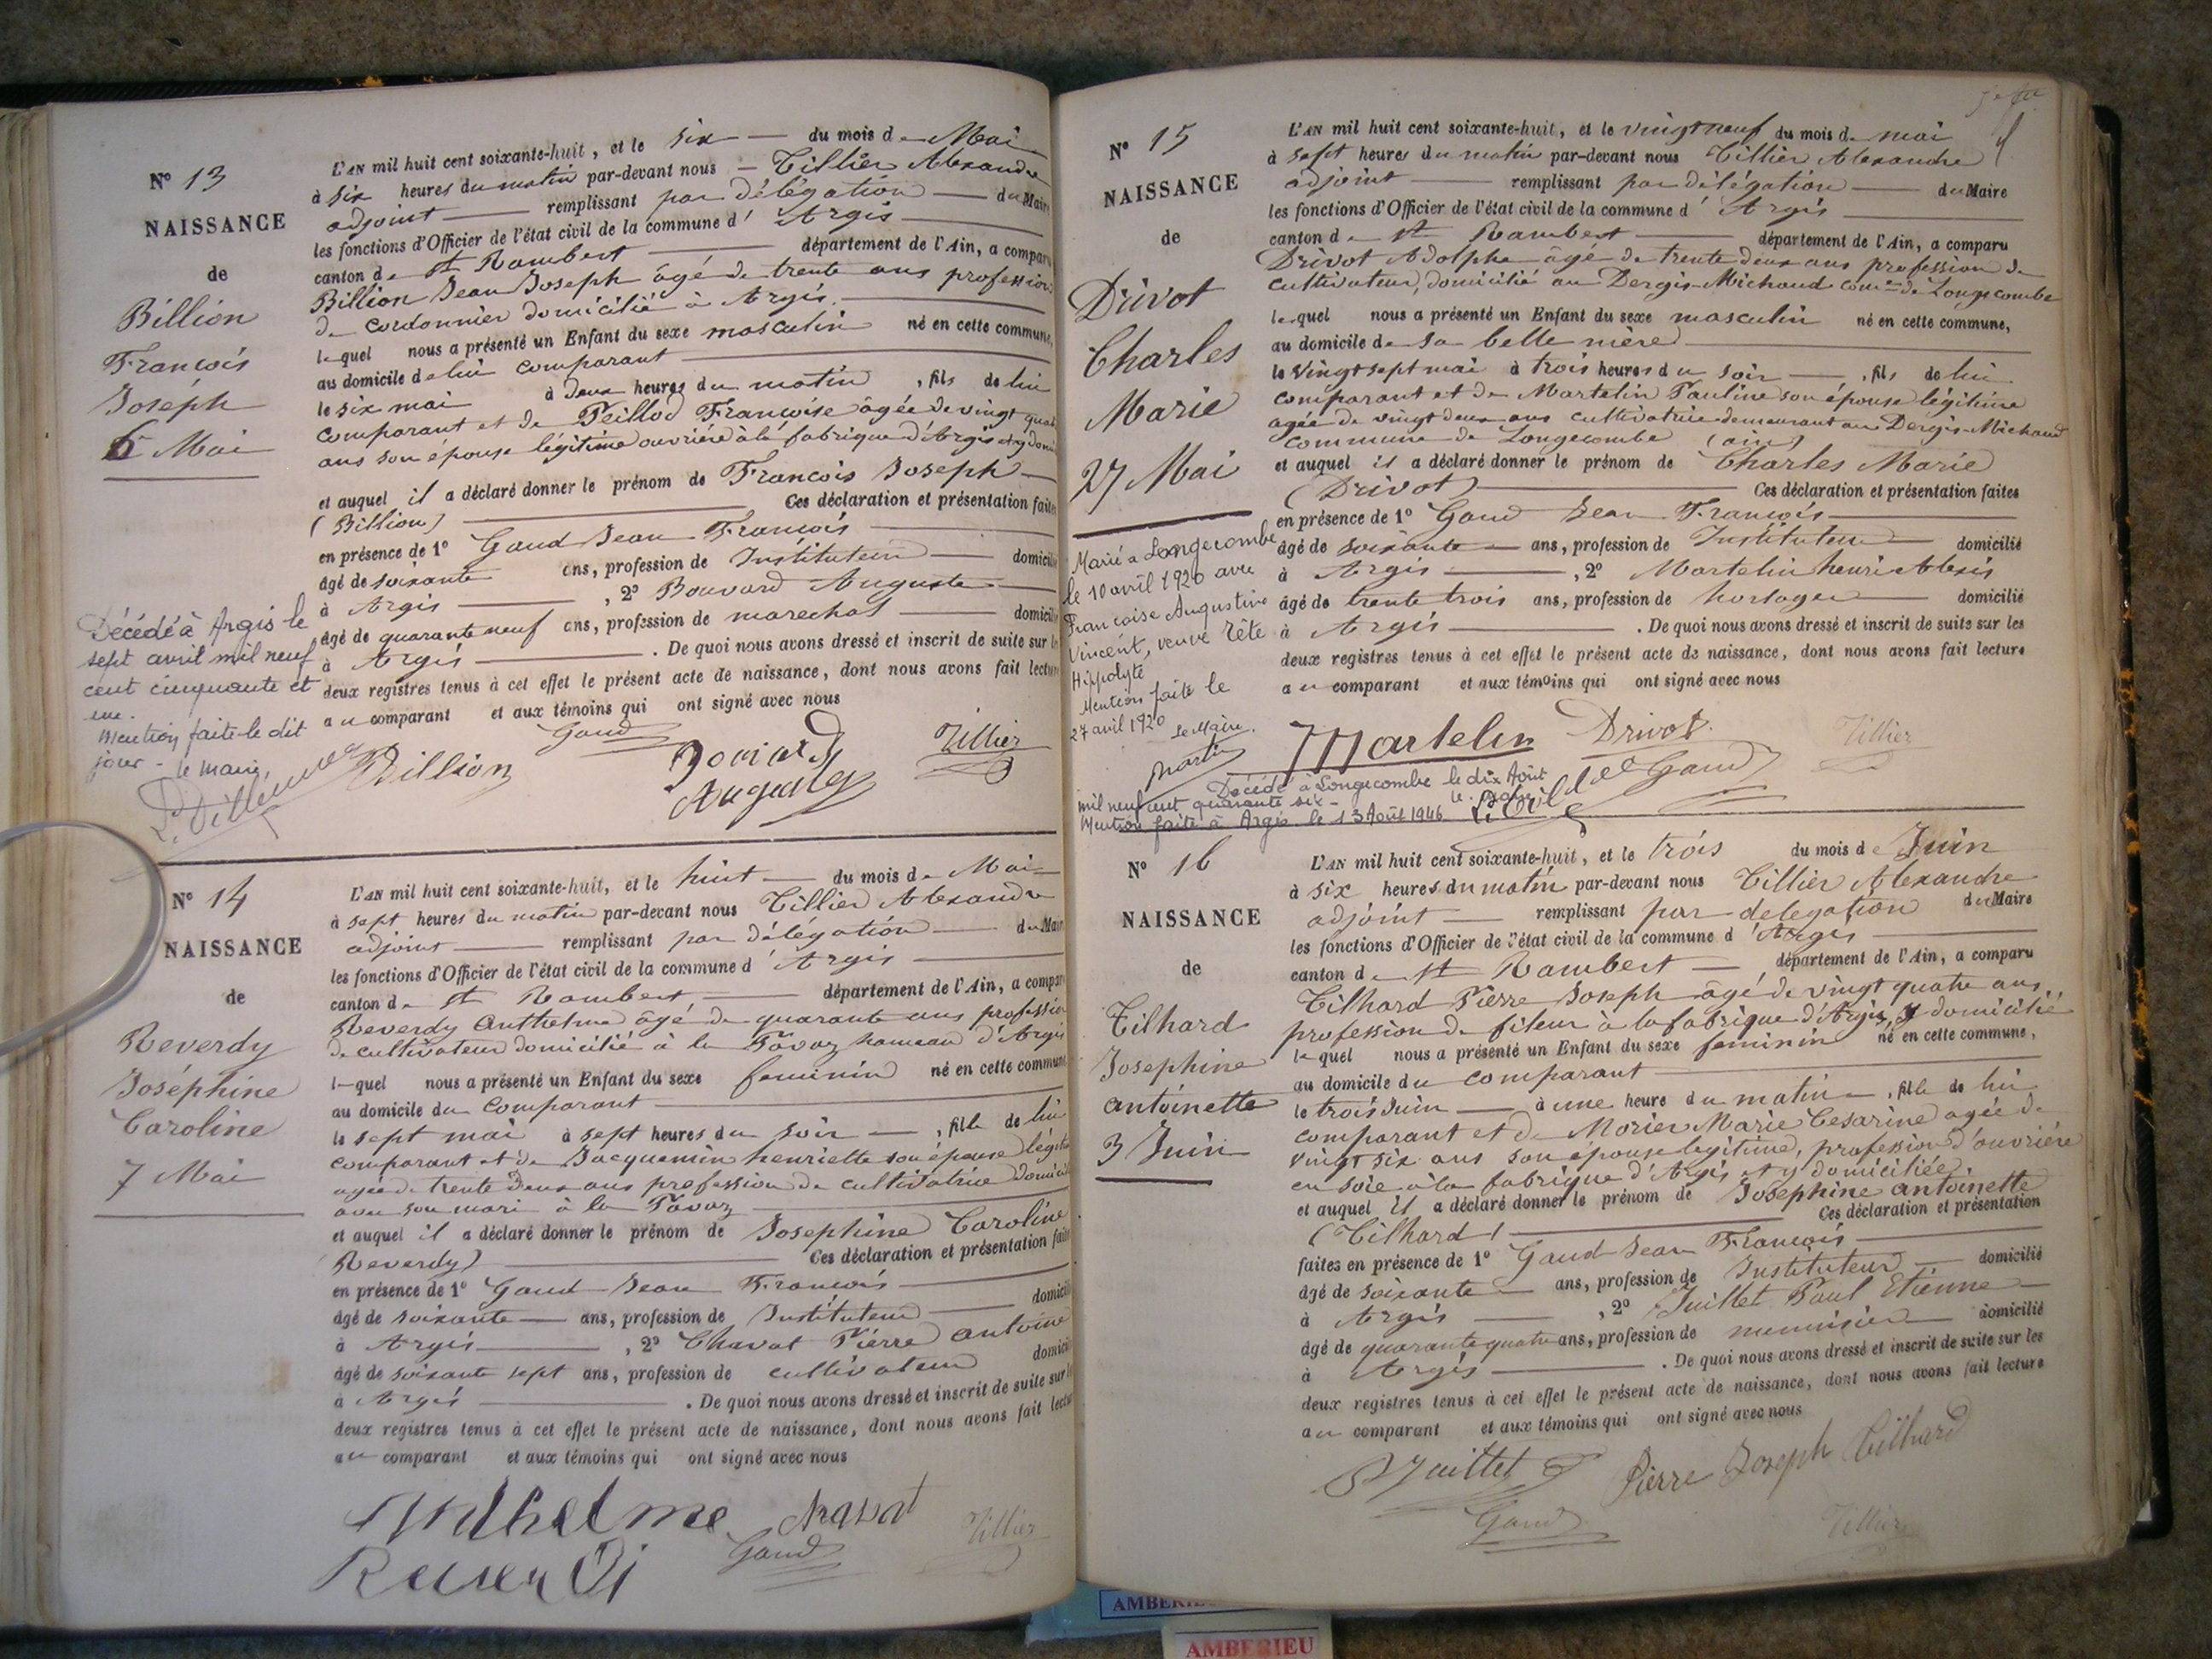 N° 13
NAISSANCE
de
Billion
François
Joseph
6 Mai
L'AN mil huit cent soixante-huit, et le six du mois de Mai
à six heures du matin par-devant nous Tillier Alexandre
adjoint remplissant par délégation du Maire
les fonctions d'Officier de l'état civil de la commune d'Argis
canton de St Rambert département de l'Ain, a comparu
Billion Jean Joseph âgé de trente ans profession
de cordonnier domicilié à Argis.
lequel nous a présenté un Enfant du sexe masculin né en cette commune,
au domicile de lui comparant
le six mai à deux heures du matin, fils de lui
comparant et de Peillod Françoise âgée de vingt quat
ans son épouse légitime ouvrière à la fabrique d'Argis et y domi
et auquel il a déclaré donner le prénom de François Joseph
(Billion) Ces déclaration et présentation faites
en présence de 1° Gaud Jean François
âgé de soixante ans, profession de Instituteur domicilié
à Argis, 2° Bouvard Auguste
âgé de quarante neuf ans, profession de marechal domicilié
à Argis. De quoi nous avons dressé et inscrit de suite sur le
deux registres tenus à cet effet le présent acte de naissance, dont nous avons fait lecture
au comparant et aux témoins qui ont signé avec nous
Décédé à Argis le
sept avril mil neuf
cent cinquante et
un.
Mention faite le dit
jour - le maire,
Gaud
Tillier
Billion
Bouvard
Auguste
N° 14
NAISSANCE
de
Reverdy
Joséphine
Caroline
7 Mai
L'AN mil huit cent soixante-huit, et le huit du mois de Mai
à sept heures du matin par-devant nous Tillier Alexandre
adjoint remplissant par délégation du Maire
les fonctions d'Officier de l'état civil de la commune d'Argis
canton de St Rambert département de l'Ain, a comparu
Reverdy Anthelme âgé de quarante ans profession
de cultivateur domicilié à la Favaz hameau d'Argis
lequel nous a présenté un Enfant du sexe feminin né en cette commune
au domicile du comparant
le sept mai à sept heures du soir, fille de lui
comparant et de Jacquemin henriette son épouse légiti
agée de trente deux ans profession de cultivatrice domicil
avec son mari à la Favaz
et auquel il a déclaré donner le prénom de Josephine Caroline
(Reverdy) Ces déclaration et présentation faites
en présence de 1° Gaud Jean François
âgé de soixante ans, profession de Instituteur domicilié
à Argis, 2° Chavat Pierre antoine
âgé de soixante sept ans, profession de cultivateur domicilié
à Argis. De quoi nous avons dressé et inscrit de suite sur le
deux registres tenus à cet effet le présent acte de naissance, dont nous avons fait lecture
au comparant et aux témoins qui ont signé avec nous
Anthelme Chavat
Gaud
Tillier
N° 15
NAISSANCE
de
Drivot
Charles
Marie
27 Mai
L'AN mil huit cent soixante-huit, et le vingt neuf du mois de mai
à sept heures du matin par-devant nous Tillier Alexandre
adjoint remplissant par délégation du Maire
les fonctions d'Officier de l'état civil de la commune d'Argis
canton de St Rambert département de l'Ain, a comparu
Drivot Adolphe âgé de trente deux ans profession de
cultivateur, domicilié au Dergis-Michaud comne de Longecombe
lequel nous a présenté un Enfant du sexe masculin né en cette commune,
au domicile de sa belle mère
le vingt sept mai à trois heures du soir, fils de lui
comparant et de Martelin Pauline son épouse légitime
agée de vingt deux ans cultivatrice demeurant au Dergis-Michaud
commune de Longecombe (ain)
et auquel il a déclaré donner le prénom de Charles Marie
(Drivot) Ces déclaration et présentation faites
en présence de 1° Gaud Jean François
âgé de soixante ans, profession de Instituteur domicilié
à Argis, 2° Martelin henri Alexis
âgé de trente trois ans, profession de horloger domicilié
à Argis. De quoi nous avons dressé et inscrit de suite sur les
deux registres tenus à cet effet le présent acte de naissance, dont nous avons fait lecture
au comparant et aux témoins qui ont signé avec nous
Marié a Longecombe
le 10 avril 1920 avec
Francoise Augustine
Vincent, veuve Tête
Hippolyte
Mention faite le
27 avril 1920
le Maire.
Martin
Martelin Drivot
Tillier
Gaud
Décédé à Longecombe le dix Août
mil neuf cent quarante six -
Mention faite à Argis le 13 Août 1946
N° 16
NAISSANCE
de
Tilhard
Josephine
antoinette
3 Juin
L'AN mil huit cent soixante-huit, et le trois du mois de Juin
à six heures du matin par-devant nous Tillier Alexandre
adjoint remplissant par delegation du Maire
les fonctions d'Officier de l'état civil de la commune d'Argis
canton de St Rambert département de l'Ain, a comparu
Tilhard Pierre Joseph âgé de vingt quatre ans,
profession de fileur à la fabrique d'Argis, y domicilié
lequel nous a présenté un Enfant du sexe feminin né en cette commune,
au domicile du comparant
le trois Juin à une heure du matin, fille de lui
comparant et de Morier Marie Cesarine agée de
vingt six ans son épouse légitime, profession d'ouvrière
en soie à la fabrique d'Argis et y domiciliée.
et auquel il a déclaré donner le prénom de Josephine antoinette
(Tilhard) Ces déclaration et présentation
faites en présence de 1° Gaud Jean François
âgé de soixante ans, profession de Instituteur domicilié
à Argis, 2° Juillet Paul Etienne
âgé de quarante quatre ans, profession de menuisier domicilié
à Argis. De quoi nous avons dressé et inscrit de suite sur les
deux registres tenus à cet effet le présent acte de naissance, dont nous avons fait lecture
au comparant et aux témoins qui ont signé avec nous
Juillet
Pierre Joseph Tilhard
Gaud
Tillier
AMBERIEU